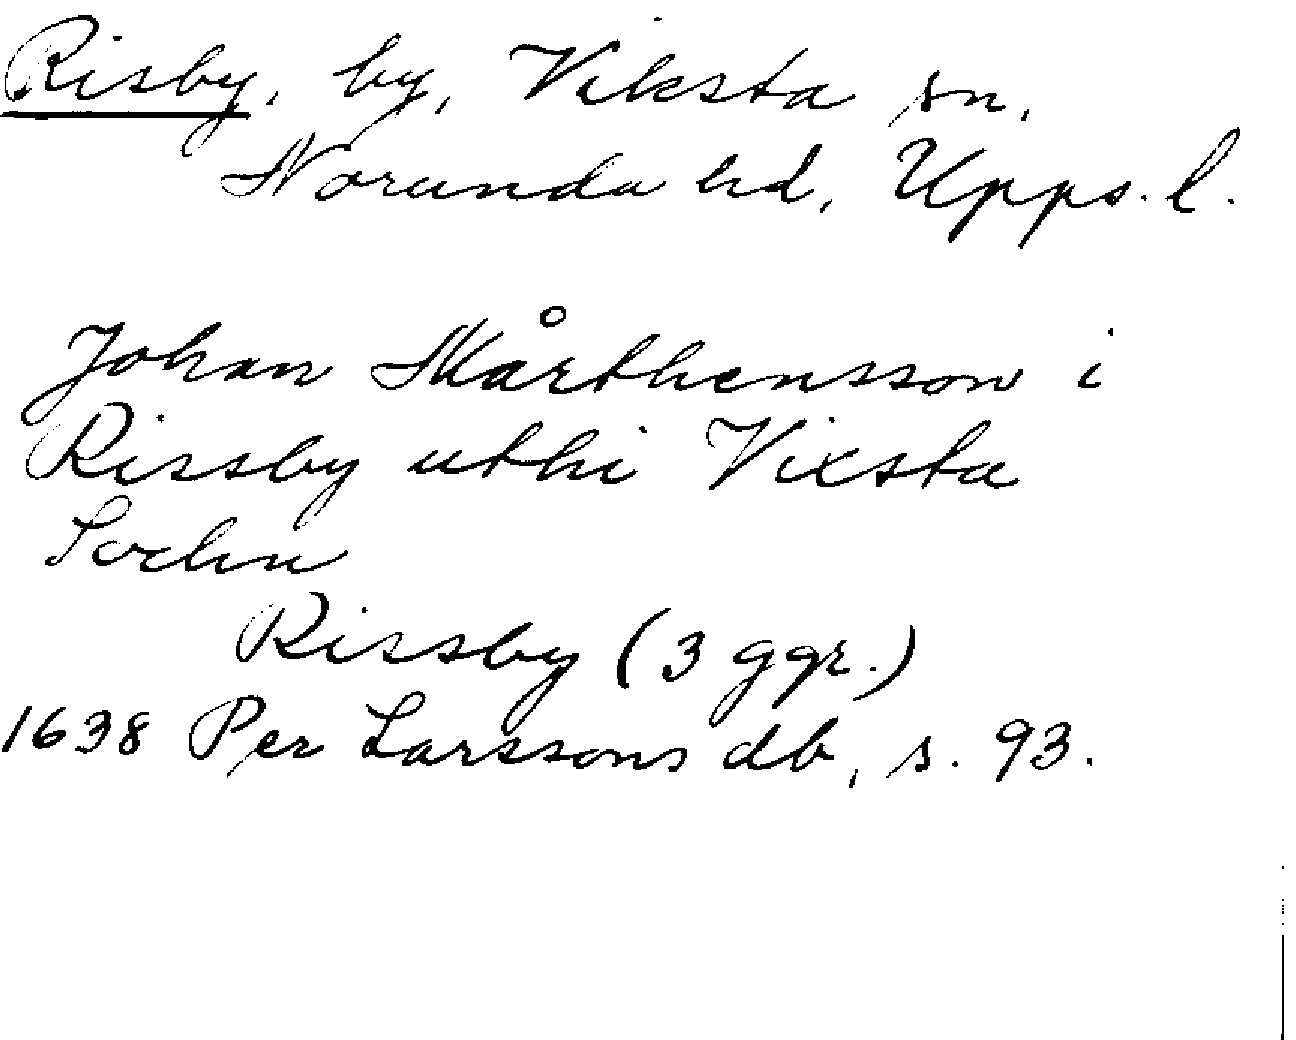 Risby, by, Viksta sn,
Norunda hd, Upps. l.
Johan Mårthensson i
Rissby uthi Vixsta
Sochn
Rissby (3 ggr.)
1638 Per Larssons db, s. 93.